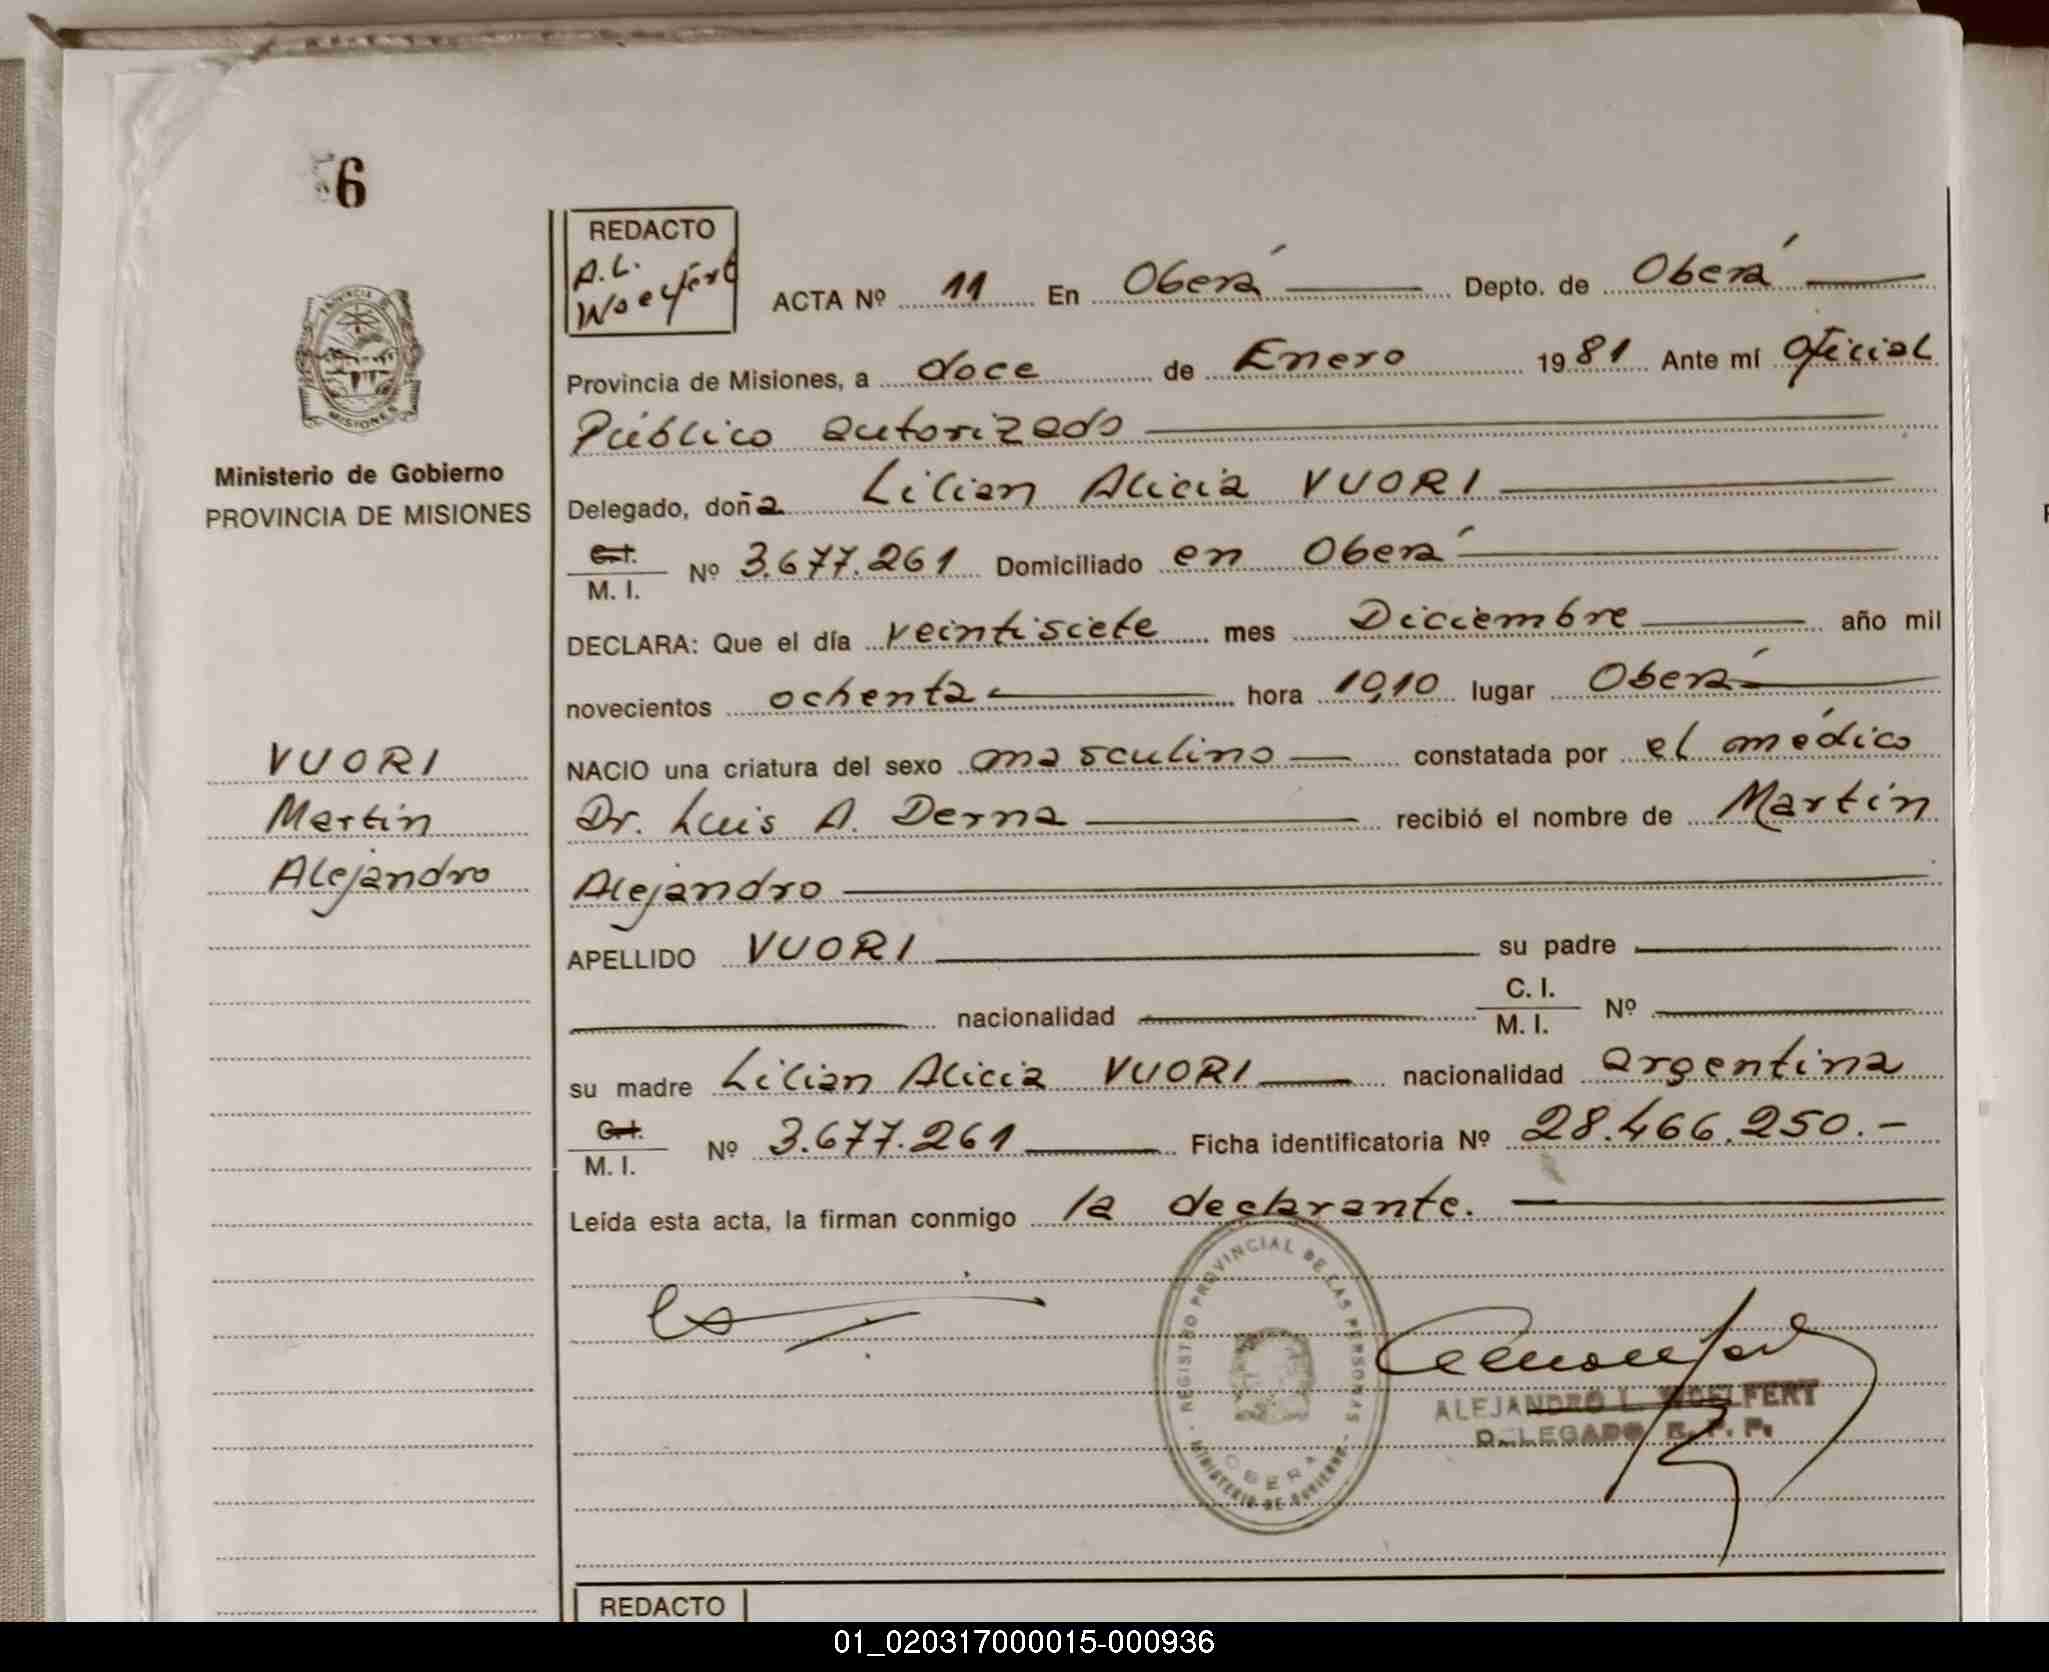 6
REDACTO
A.L.
Woelfert
ACTA Nº 11 En Oberá Depto. de Oberá
Provincia de Misiones, a doce de Enero 1981 Ante mí Oficial
Público autorizado
PROVINCIA DE
MISIONES
Ministerio de Gobierno
PROVINCIA DE MISIONES
Delegado, doña Lilian Alicia VUORI
C.I.
M. I. Nº 3.677.261 Domiciliado en Oberá
DECLARA: Que el día veintisiete mes Diciembre año mil
novecientos ochenta hora 10,10 lugar Oberá
VUORI
Martin
Alejandro
NACIO una criatura del sexo masculino constatada por el médico
Dr. Luis A. Derna recibió el nombre de Martin
Alejandro
APELLIDO VUORI su padre
nacionalidad C. I.
M. I. Nº
su madre Lilian Alicia VUORI nacionalidad argentina
C.I.
M. I. Nº 3.677.261 Ficha identificatoria Nº 28.466.250.-
Leída esta acta, la firman conmigo la declarante.
REGISTRO PROVINCIAL DE LAS PERSONAS
OBERA
MINISTERIO DE GOBIERNO
ALEJANDRO L. WOELFERT
DELEGADO R. P. P.
REDACTO
01_020317000015-000936